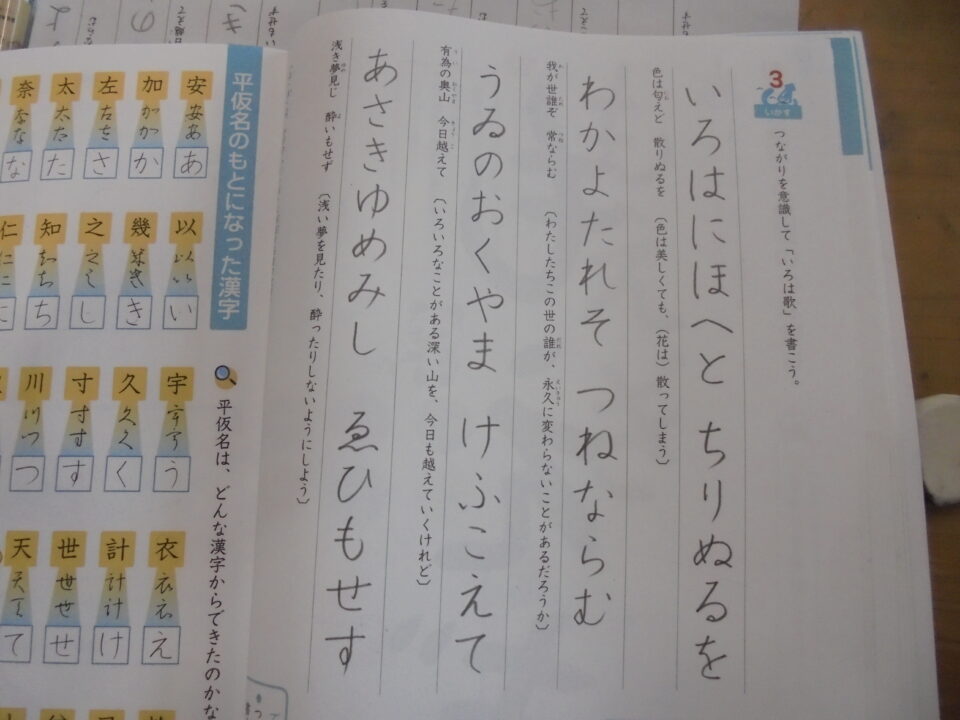 3
いかす
つながりを意識して「いろは歌」を書こう。
いろはにほへと ちりぬるを
色は匂えど 散りぬるを (色は美しくても、(花は)散ってしまう)
わかよたれそ つねならむ
我が世誰ぞ 常ならむ (わたしたちこの世の誰が、永久に変わらないことがあるだろうか)
うゐのおくやま けふこえて
有為の奥山 今日越えて (いろいろなことがある深い山を、今日も越えていくけれど)
あさきゆめみし ゑひもせす
浅き夢見じ 酔いもせず (浅い夢を見たり、酔ったりしないようにしよう)
平仮名のもとになった漢字
平仮名は、どんな漢字からできたのかな
安 安 あ あ
加 か か か
左 左 さ さ
太 太 た た
奈 な な な
以 以 い い
幾 き き
之 之 し し
知 ち ち
仁 仁 に
宇 宇 う う
久 久 く く
寸 寸 す す
川 川 つ つ
衣 衣 え え
計 計 け け
世 世 せ せ
天 天 て て